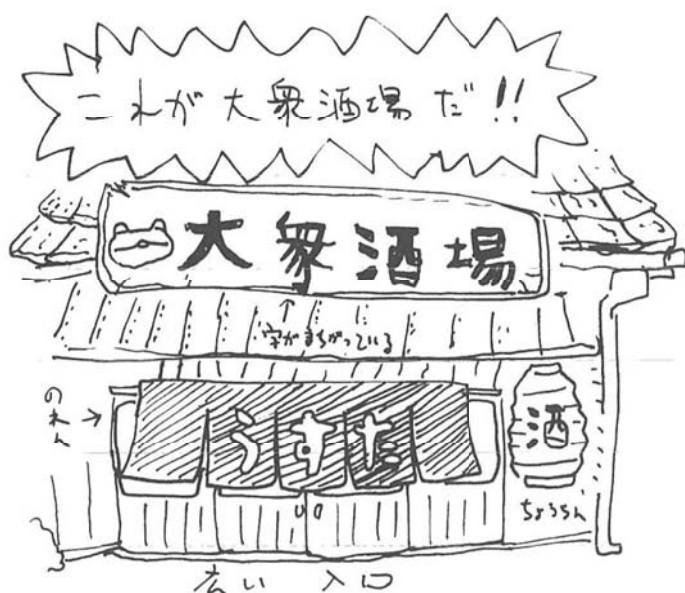 これが大衆酒場だ!!
大衆酒場
↑
字がまちがっている
のれん→
うすた
酒
ちょうちん
広い 入口